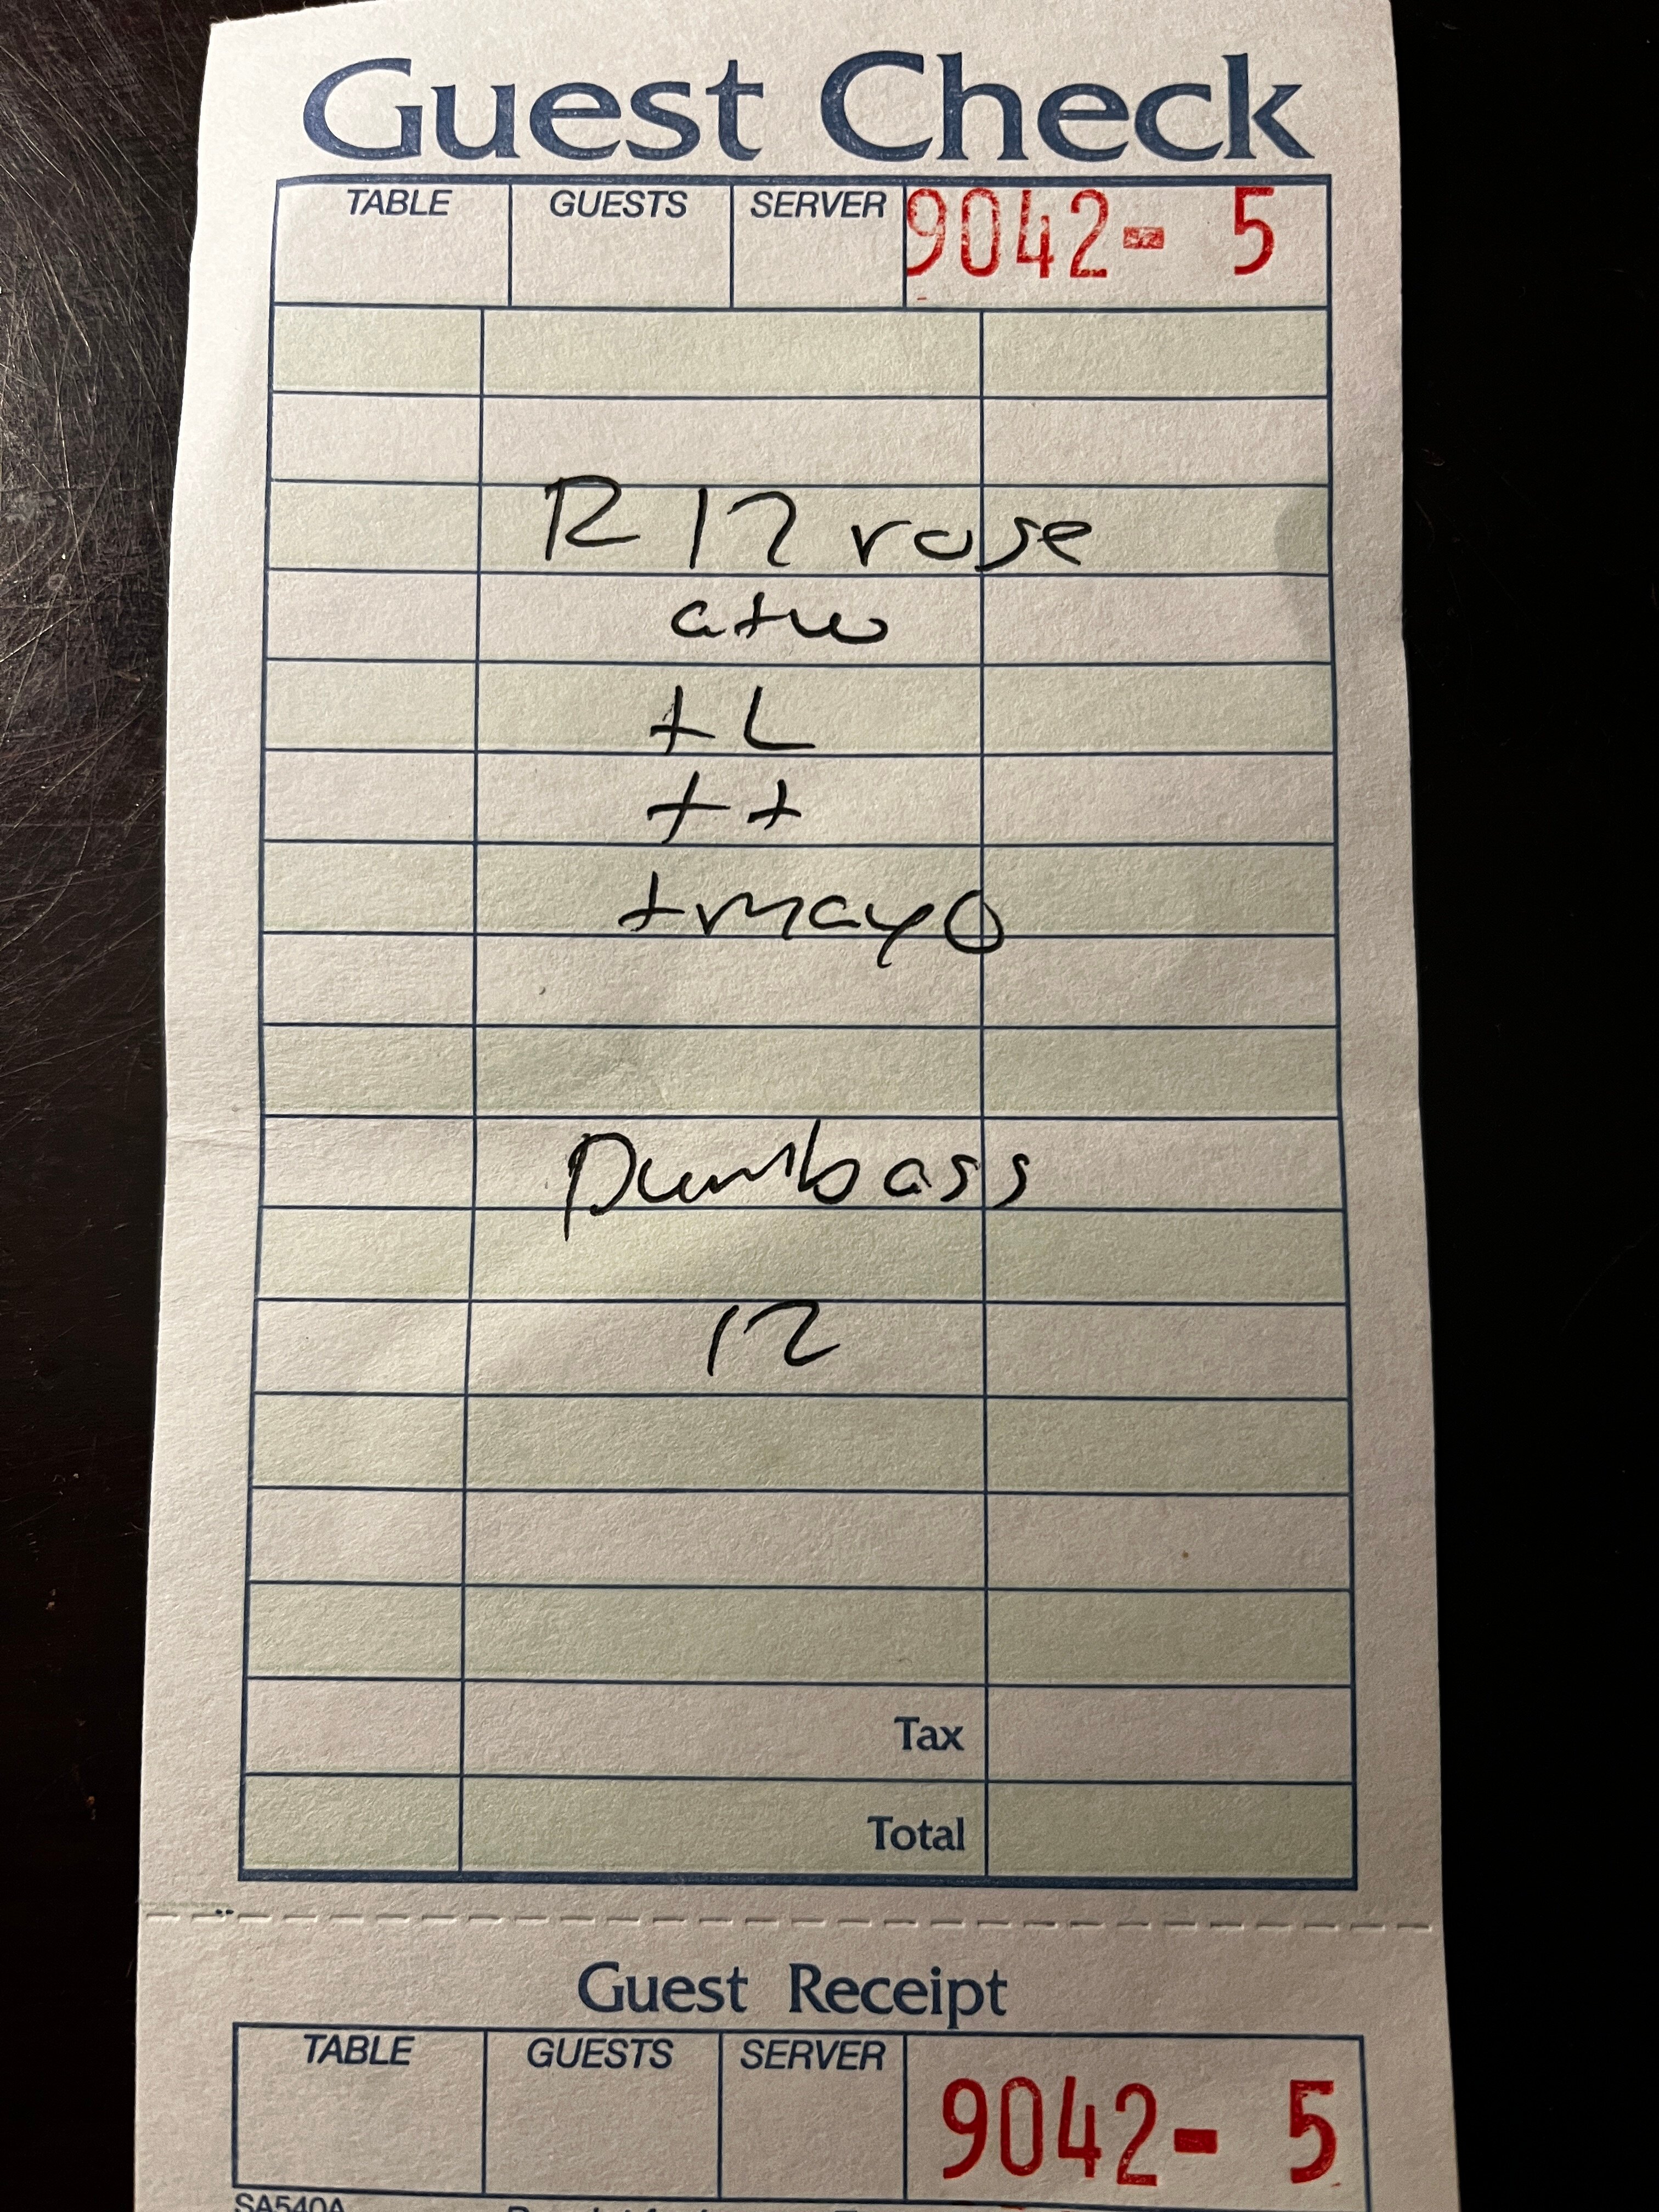 Guest Check
TABLE GUESTS SERVER 9042- 5
R 12 rose
atw
+ L
+ +
+mayo
Dumbass
12
Tax
Total
Guest Receipt
TABLE GUESTS SERVER 9042- 5
SA540A